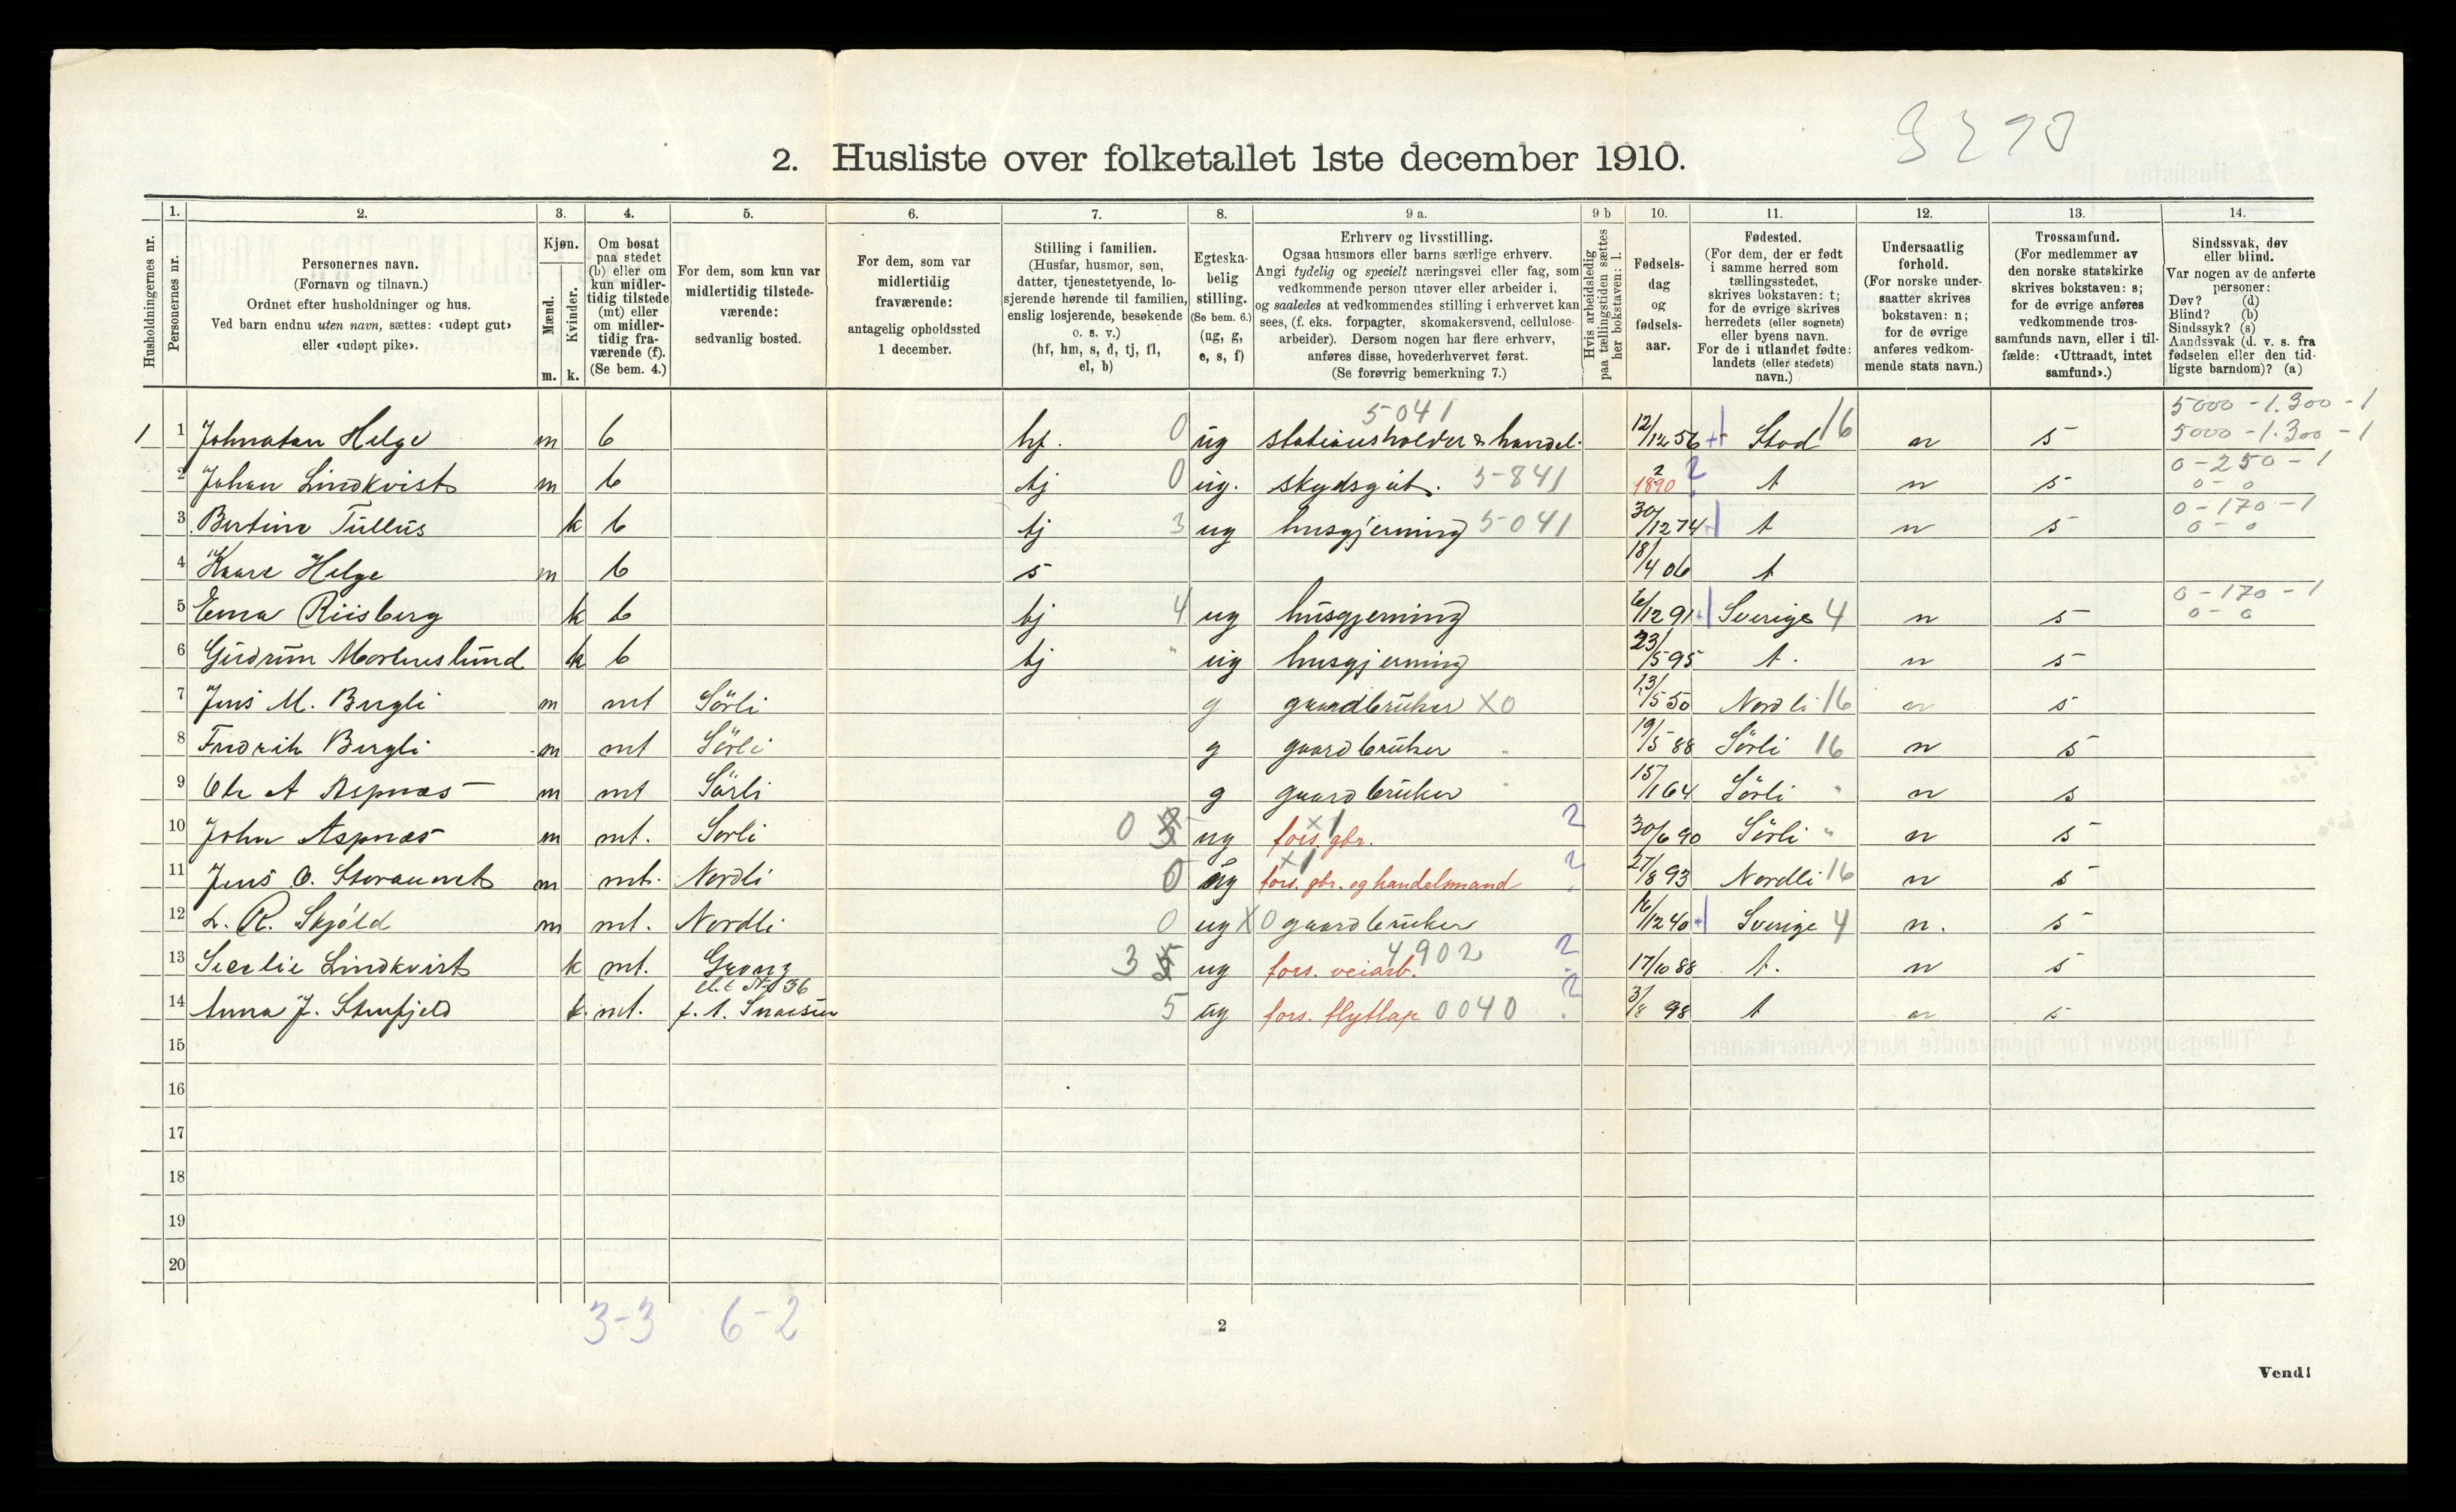 3270
2. Husliste over folketallet 1ste december 1910.
1. 2. 3. 4. 5. 6. 7. 8. 9 a. 9 b 10. 11. 12. 13. 14.
Husholdningernes nr.
Personernes nr.
Personernes navn.
(Fornavn og tilnavn.)
Ordnet efter husholdninger og hus.
Ved barn endnu uten navn, sættes: «udøpt gut»
eller «udøpt pike».
Kjøn.
Mænd.
Kvinder.
m. k.
Om bosat
paa stedet
(b) eller om
kun midler-
tidig tilstede
(mt) eller
om midler-
tidig fra-
værende (f).
(Se bem. 4.)
For dem, som kun var
midlertidig tilstede-
værende:
sedvanlig bosted.
For dem, som var
midlertidig
fraværende:
antagelig opholdssted
1 december.
Stilling i familien.
(Husfar, husmor, søn,
datter, tjenestetyende, lo-
sjerende hørende til familien,
enslig losjerende, besøkende
o. s. v.)
(hf, hm, s, d, tj, fl,
el, b)
Egteska-
belig
stilling.
(Se bem. 6.)
(ug, g,
e, s, f)
Erhverv og livsstilling.
Ogsaa husmors eller barns særlige erhverv.
Angi tydelig og specielt næringsvei eller fag, som
vedkommende person utøver eller arbeider i,
og saaledes at vedkommendes stilling i erhvervet kan
sees, (f. eks. forpagter, skomakersvend, cellulose-
arbeider). Dersom nogen har flere erhverv,
anføres disse, hovederhvervet først.
(Se forøvrig bemerkning 7.)
Hvis arbeidsledig
paa tællingstiden sættes
her bokstaven: l.
Fødsels-
dag
og
fødsels-
aar.
Fødested.
(For dem, der er født
i samme herred som
tællingsstedet,
skrives bokstaven: t;
for de øvrige skrives
herredets (eller sognets)
eller byens navn.
For de i utlandet fødte:
landets (eller stedets)
navn.)
Undersaatlig
forhold.
(For norske under-
saatter skrives
bokstaven: n;
for de øvrige
anføres vedkom-
mende stats navn.)
Trossamfund.
(For medlemmer av
den norske statskirke
skrives bokstaven: s;
for de øvrige anføres
vedkommende tros-
samfunds navn, eller i til-
fælde: «Uttraadt, intet
samfund».)
Sindssvak, døv
eller blind.
Var nogen av de anførte
personer:
Døv? (d)
Blind? (b)
Sindssyk? (s)
Aandssvak (d. v. s. fra
fødselen eller den tid-
ligste barndom)? (a)
5041 5000 - 1.300 - 1
1 1 Johnatan Helge m b hf. 0 ug stationsholder & handel. 12/12 56 Stod 16 n s 5000 - 1.300 - 1
2 Johan Lindkvist m b tj 0 ug. skydsgut. 5841 2 1890 ? t n s 0 - 250 - 1
0 - 0
3 Bertine Tullus k b tj 3 ug husgjerning 5041 30/12 74 t n s 0 - 170 - 1
0 - 0
4 Kaare Helge m b s 18/4 06 t
5 Erna Riisberg k b tj 4 ug husgjerning 6/12 91 Sverige 4 n s 0 - 170 - 1
0 - 0
6 Gudrun Mortenslund k b tj " ug husgjerning 23/5 95 t. n s
7 Jens M. Bergli m mt Sörli g gaardbruker X0 13/5 50 Nordli 16 n s
8 Fredrik Bergli m mt Sörli g gaardbruker " 19/5 88 Sörli 16 n s
9 Ole A Aspnæs m mt Sörli g gaardbruker " 15/1 64 Sörli " n s
10 John Aspnæs m mt. Sörli 0 ug fors. gbr. X1 2 30/6 90 Sörli " n s
11 Jens O. m mt. Nordli 0 ug fors. gbr. og handelsmand X1 2 27/8 93 Nordli 16 n s
12 L. R. Skjöld m mt. Nordli 0 ug X0 gaardbruker 16/12 40 Sverige 4 n. s
13 Lindkvist k mt. Grong 3 ug fors. veiarb. 4902 2 17/10 88 t. n s
14 Anna J. Stenfjeld k. mt. f. t. Snaasen 5 ug fors. flytlap 0040 2 3/8 98 t n s
15
16
17
18
19
20
3-3 6-2
2
Vend!